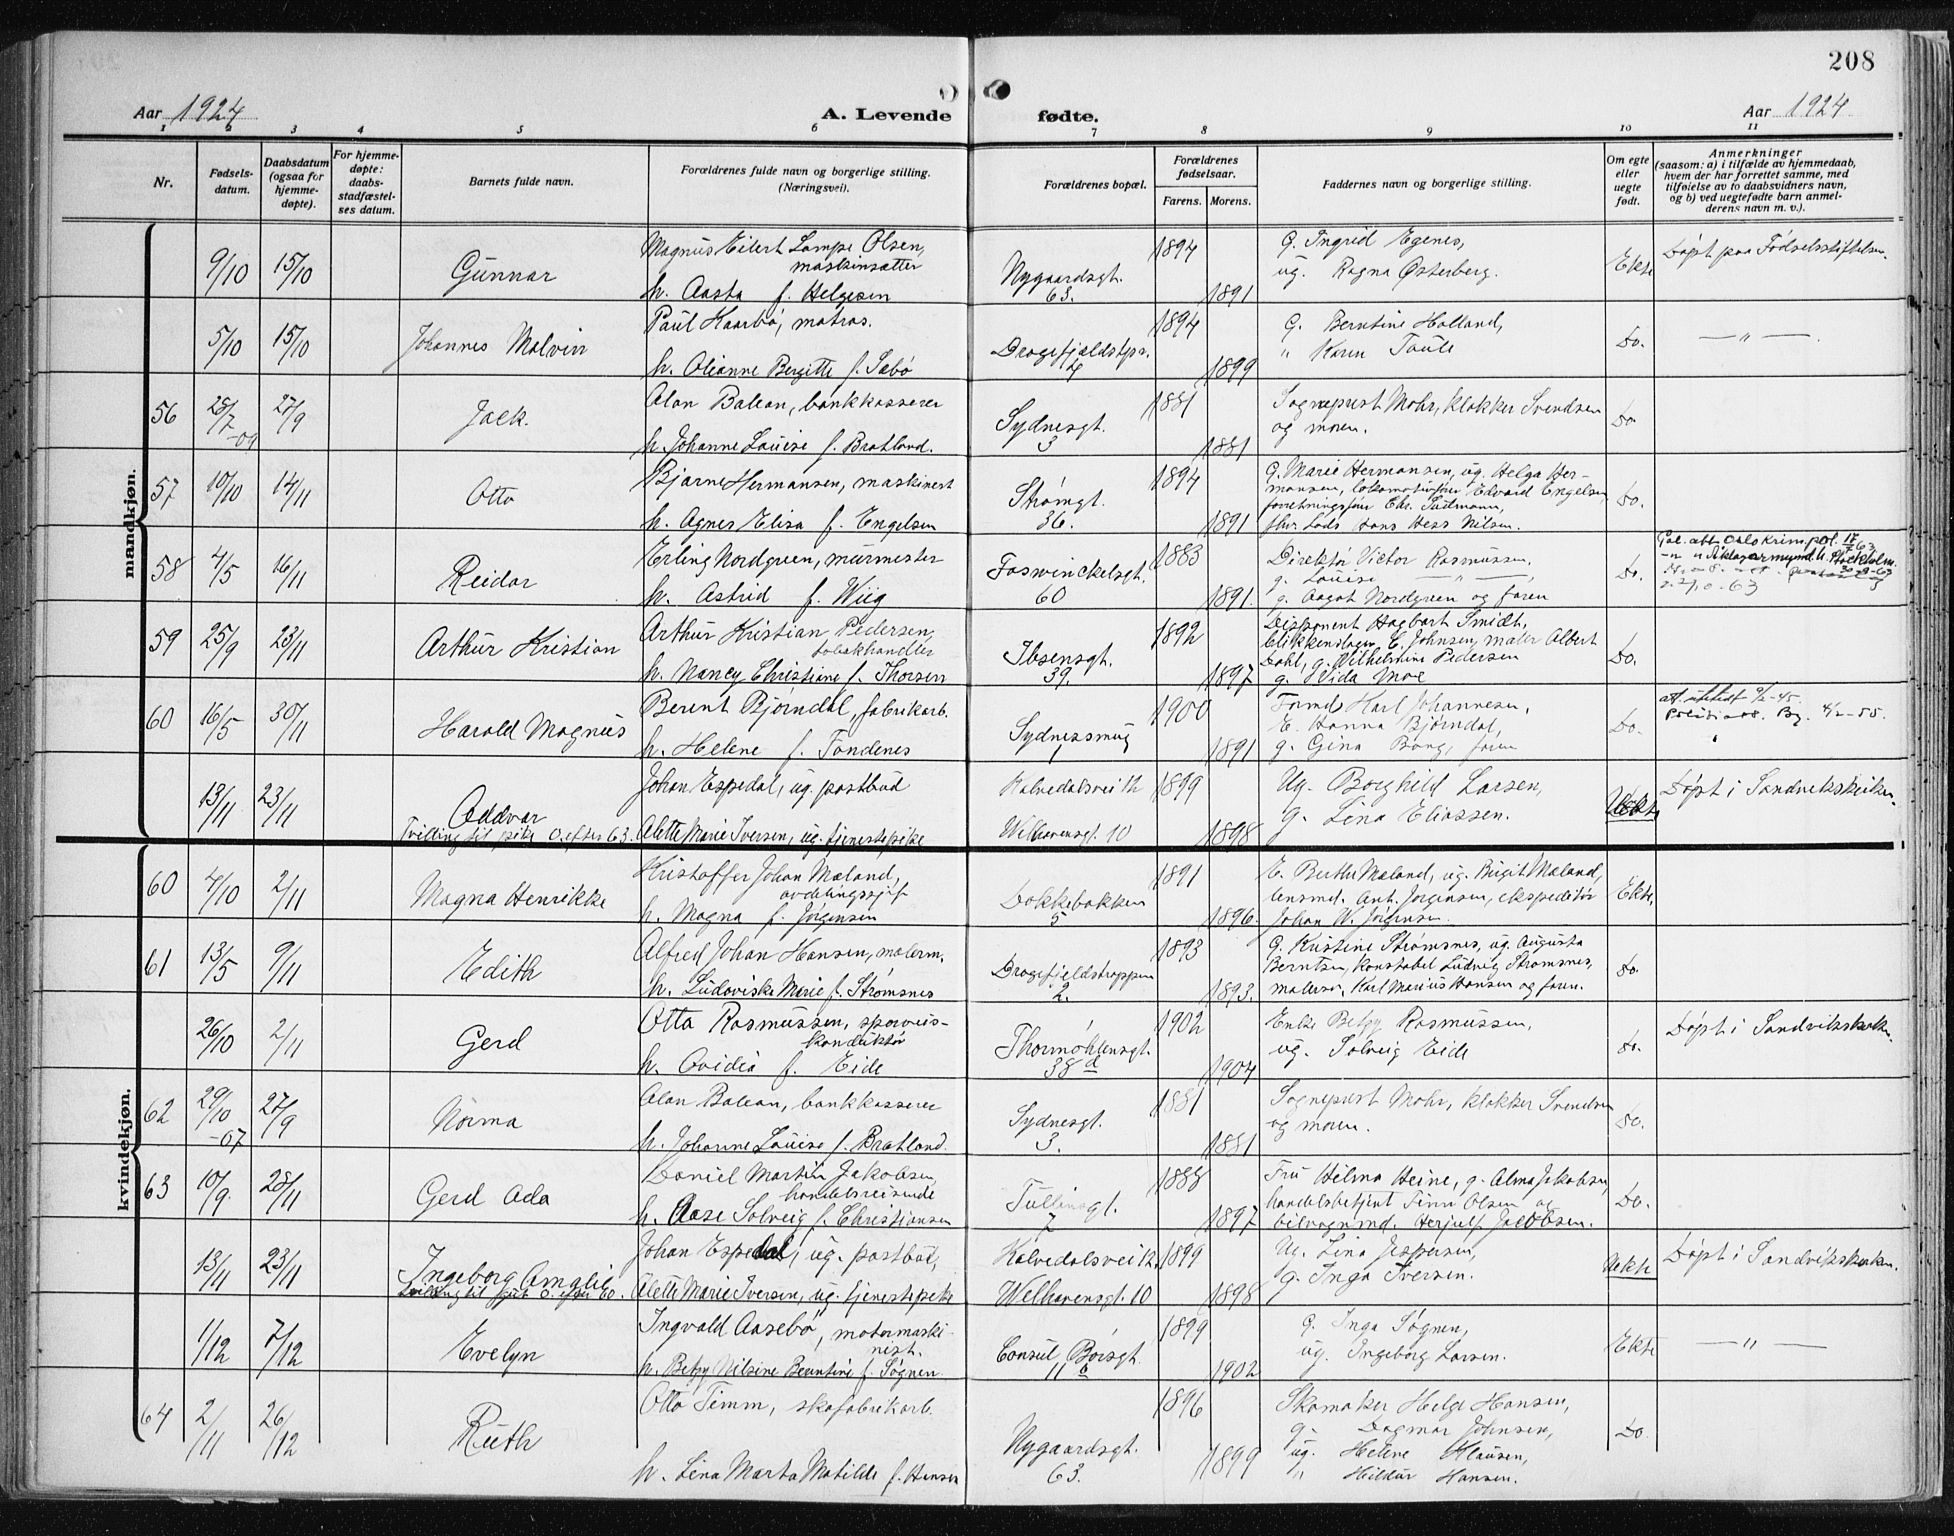 208
Aar 1924
A. Levende fødte.
Aar 1924
1 2 3 4 5 6 7 8 9 10 11
Nr.
Fødsels-
datum.
Daabsdatum
(ogsaa for
hjemme-
døpte).
For hjemme-
døpte:
daabs-
stadfæstel-
ses datum.
Barnets fulde navn.
Forældrenes fulde navn og borgerlige stilling.
(Næringsvei).
Forældrenes bopæl.
Forældrenes
fødselsaar.
Farens. Morens.
Faddernes navn og borgerlige stilling.
Om egte
eller
uegte
født.
Anmerkninger
(saasom: a) i tilfælde av hjemmedaab,
hvem der har forrettet samme, med
tilføielse av to daabsvidners navn,
og b) ved uegtefødte barn anmel-
derens navn m. v.).
mandkjøn.
9/10 15/10 Gunnar
Magnus Eilert Lampe Olsen,
maskinsætter
h. Aasta f. Helgesen
Nygaardsgt.
63.
1894
1891
G. Ingrid Egenes,
ug. Ragna Østerberg.
Ekte
Døpt paa Fødselsstiftelsen
5/10 15/10 Johannes Malvin
Paul Kaarbø, matros.
h. Oleanne Bergitte f. Sæbø
Dragefjeldstpr.
4
1894
1899
G. Berntine Holland,
" Karen Taule
Do.
— " —
56 28/7 -09 27/9 Jack.
Alan Balean, bankkasserer
h. Johanne Louise f. Bratland.
Sydnesgt.
3
1881
1881
Sogneprest Mohr, klokker Svendsen
og moren.
Do
57 10/10 14/11 Otto
Bjarne Hermansen, maskinist
h. Agnes Elisa f. Engelsen
Strømgt.
36.
1894
1891
G. Marie Hermansen, ug. Helga Her-
mansen, lokomotivfører Edvard Engelsen
forretningsfører Chr. Sudmann,
Hans Hess Nilsen.
Do.
58 4/5 16/11 Reidar
Erling Nordgreen, murmester
h. Astrid f. Wiig
Foswinckelsgt.
60
1883
1891.
Direktør Victor Rasmussen,
g. Louise — " —
g. Aagot Nordgreen og faren
Do.
Oslo krim.pol. 17/7 63
59 25/9 23/11 Arthur Kristian
Arthur Kristian Pedersen,
tobakhandler
h. Nancy Christine f. Thorsen
Ibsensgt.
39.
1892
1897
Disponent Hagbart Smidt,
blikkenslager C. Johnsen, maler Albert
Dahl, g. Vilhelmine Pedersen
g. Vida Moe
Do.
60 16/5 30/11 Harald Magnus
Berent Bjørndal, fabrikarb.
h. Helene f. Fondenes
Sydnessmug
1
1900
1891
Formd. Karl Johannesen,
E. Hanna Bjørndal,
g. Gina Bang, faren
Do.
13/11 23/11 Oddvar
Tvilling til pike O. efter 63.
Johan Espedal, ug. postbud
Alette Marie Iversen, ug. tjenestepike
Kalvedalsvei 12
Welhavensgt. 10
1899
1898
Ug. Borghild Larsen,
g. Lina Eliassen.
Uekte
Døpt i Sandvikskirken.
kvindekjøn.
60 4/10 2/11 Magna Henrikke
Kristoffer Johan Mæland,
avdelingssjef
h. Magna f. Jørgensen
Dokkebakken
5
1891
1896.
E. Berthe Mæland, ug. Birgit Mæland,
lensmd. Ant. Jørgensen, ekspeditør
Johan W. Jørgensen.
Ekte,
61 13/5 9/11 Edith
Alfred Johan Hansen, malerm.
h. Ludoviske Marie f. Strømsnes
Dragefjeldstrappen
2.
1893
1893.
G. Kristine Strømsnes, ug. Augusta
Berntsen, konstabel Ludvig Strømsnes,
malersv. Karl Marius Hansen og faren.
Do.
26/10 2/11 Gerd
Otto Rasmussen, sporveis-
konduktør
h. Ovidia f. Eide
Thormøhlensgt.
38 d
1902
1904
Enke Betzy Rasmussen,
ug. Solveig Eide
Do.
Døpt i Sandvikskirken.
62 29/10 -07 27/9 Norma
Alan Balean, bankkasserer
h. Johanne Louise f. Bratland.
Sydnesgt.
3.
1881
1881
Sogneprest Mohr, klokker Svendsen
og moren.
Do.
63 10/9 23/11 Gerd Ada
Daniel Martin Jakobsen
handelsreisende
h. Aase Solveig f. Christiansen
Tullinsgt.
7
1888
1897
Fru Helma Heine, g. Alma Jakobsen,
handelsbetjent Finn Olsen og
bilvognmd. Herjulf Jacobsen.
Do.
13/11 23/11 Ingeborg Amalie
Tvilling til gut O. efter 60.
Johan Espedal, ug. postbud,
Alette Marie Iversen, ug. tjenestepike
Kalvedalsvei 12
Welhavensgt. 10
1899
1898
Lina Jespersen,
g. Inga Iversen.
Uekte
Døpt i Sandvikskirken.
1/12 7/12 Evelyn
Ingvald Aasebø, motormaski-
nist.
h. Betzy Nilsine Berntine f. Søgnen
Consul Børsgt.
11 b
1899
1902
G. Inga Søgnen,
ug. Ingeborg Larsen.
Ekte
— " —
64 2/11 26/12 Ruth
Otto Timm, skofabrikarb.
h. Lina Marta Matilde f. Hansen
Nygaardsgt.
63.
1896
1899
Skomaker Helge Hansen,
g. Dagmar Johnsen,
ug. Helene Klausen,
" Hildur Hansen.
Do